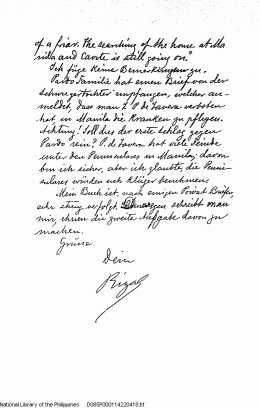 of a friar. The searching of the home at Ma
nila and Cavite is still going on."
Ich füge keine Bemerkungen zu.
Pardo Familie hat einen Brief von der
Schwiegertochter empfangen, welcher an-
meldet, dass man T. P. de Tavera verboten
hat, in Manila die Kranken zu pflegen.
Achtung! Soll dies der erste Schlag gegen
Pardo sein? P. de Tavera hat viele Feinde
unter den Peninsulares in Manila, davon
bin ich sicher, aber ich glaubte, die Penin-
sulares würden sich klüger benehmen.
Mein Buch ist, nach einigen Privat Briefen,
sehr streng verfolgt. schreibt man
mir, ihnen die zweite Ausgabe davon zu
machen.
Grüsse
Dein
Rizal
National Library of the Philippines D085R0001114220418.tif